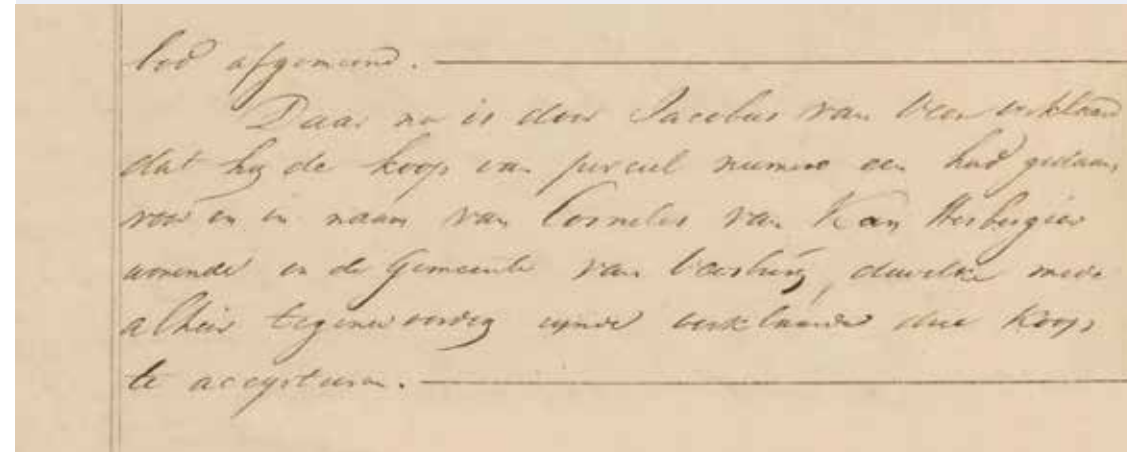 bod afgemeend.
Daar na is door Jacobus van Veen verklaard
dat hy de koop van perceel numero een had gedaan,
voor en in naam van Cornelis van Kan Herbergier
wonende in de Gemeente van, dewelke mede
alhier tegenwoordig zynde verklaarde dien koop
te accepteren.